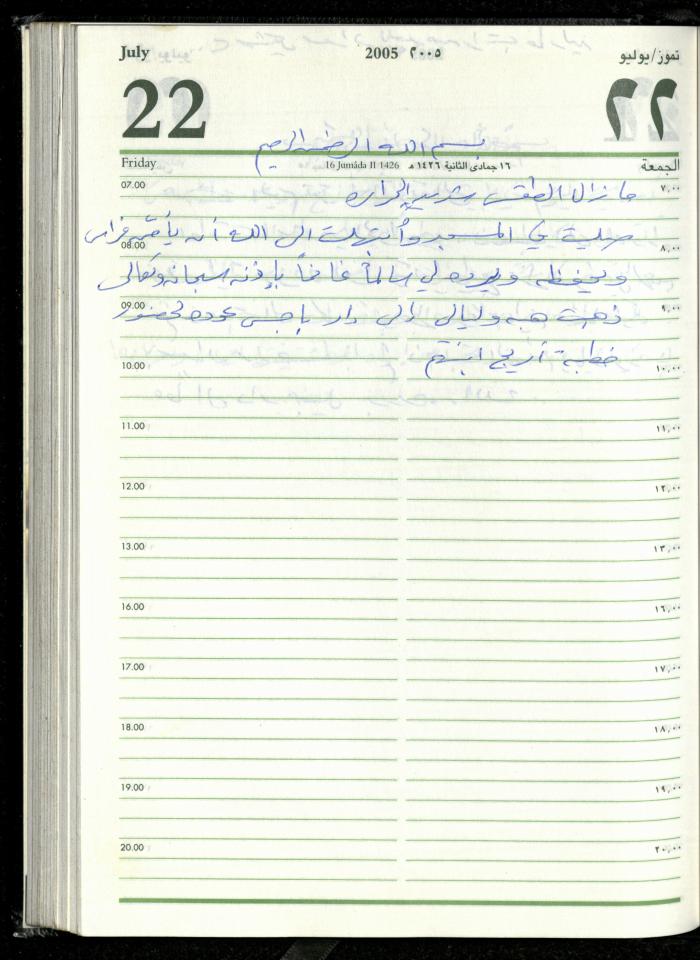 July 2005 ٢٠٠٥ تموز/يوليو
22 ٢٢
بسم الله الرحمن الرحيم
Friday 16 Jumáda II 1426 ١٦ جمادى الثانية ١٤٢٦ هـ الجمعة
07.00 ٧,٠٠
ما زال الطقس شديد الحرارة
صليت في المسجد وأبتهلت الى الله أن فراس
08.00 ٨,٠٠
ويحفظه ويرده لي سالماً غانماً بإذنه سبحانه وتعالى
09.00 ٩,٠٠
ذهبت هبه وليالي الى دار باجي لحضور
خطبة أريج
10.00 ١٠,٠٠
11.00 ١١,٠٠
12.00 ١٢,٠٠
13.00 ١٣,٠٠
16.00 ١٦,٠٠
17.00 ١٧,٠٠
18.00 ١٨,٠٠
19.00 ١٩,٠٠
20.00 ٢٠,٠٠